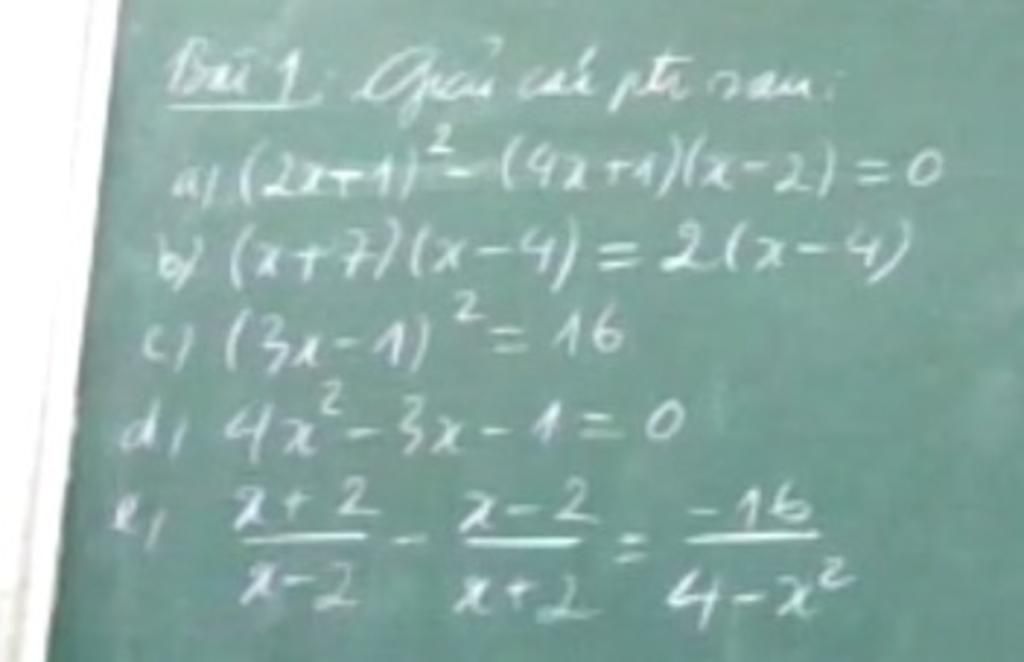 Bài 1: Giải các ptr sau:
a) (2x+1)² - (4x+1)(x-2) = 0
b) (x+7)(x-4) = 2(x-4)
c) (3x-1)² = 16
d) 4x² - 3x - 1 = 0
e) \frac{x+2}{x-2} - \frac{x-2}{x+2} = \frac{-16}{4-x²}